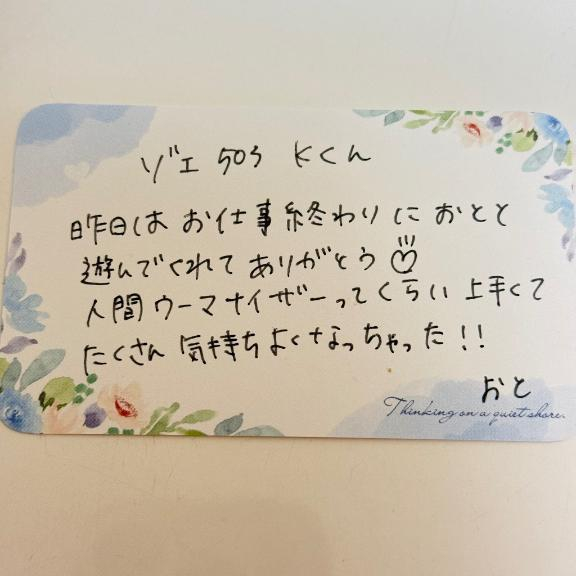 ゾエ 503 Kくん
昨日は お仕事終わりに おとと
遊んでくれて ありがとう♡
人間ウーマナイザーってくらい 上手くて
たくさん 気持ちよくなっちゃった!!
おと
Thinking on a quiet shore.